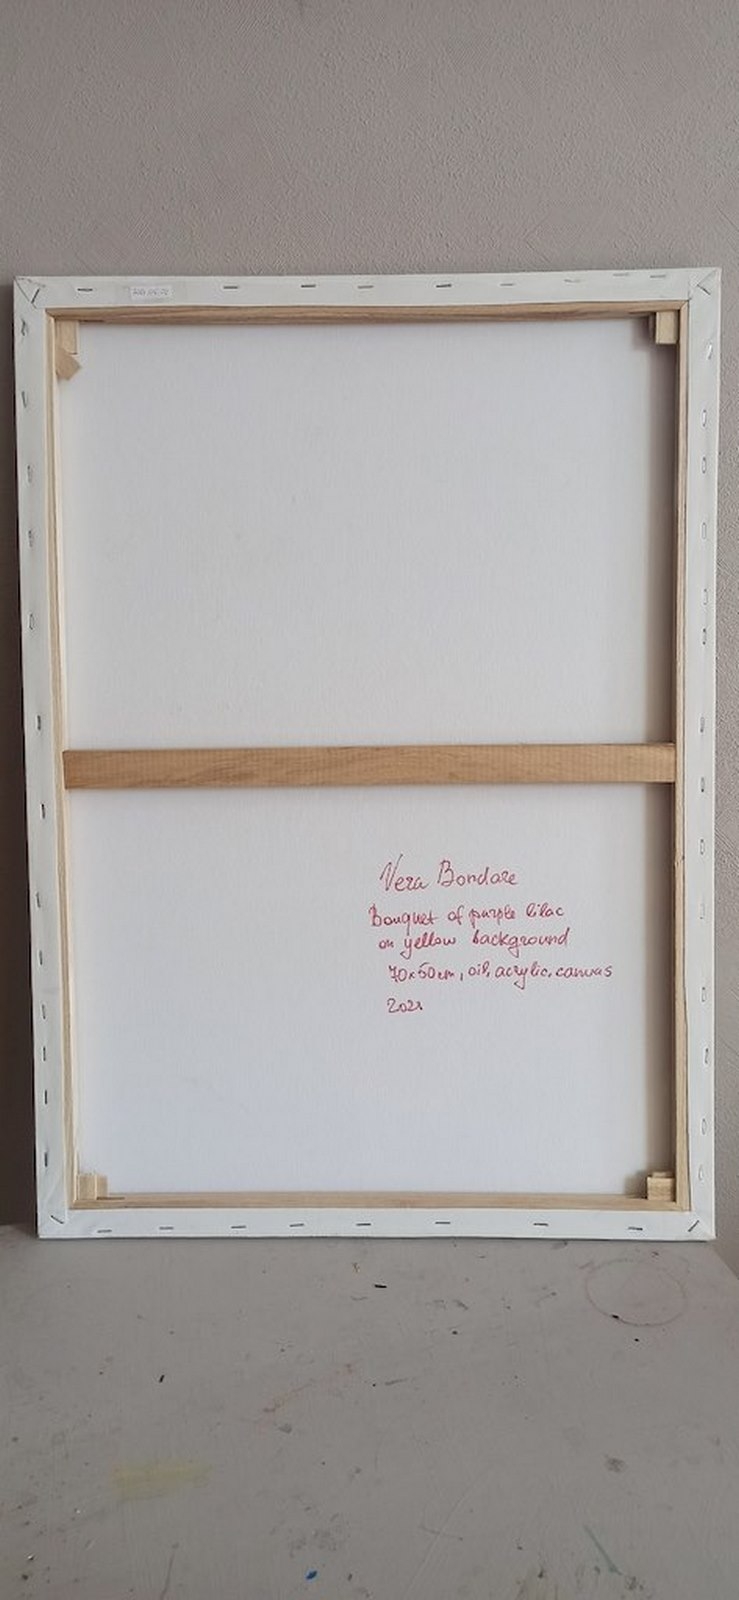 Vera Bondare
Bouquet of purple lilac
on yellow background
70x50cm, oil, acrylic, canvas